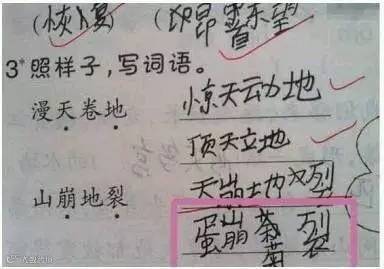 (恢复) (昂首东望)
3*照样子,写词语。
漫天卷地 惊天动地
顶天立地
山崩地裂 天崩地裂
蛋崩菊裂